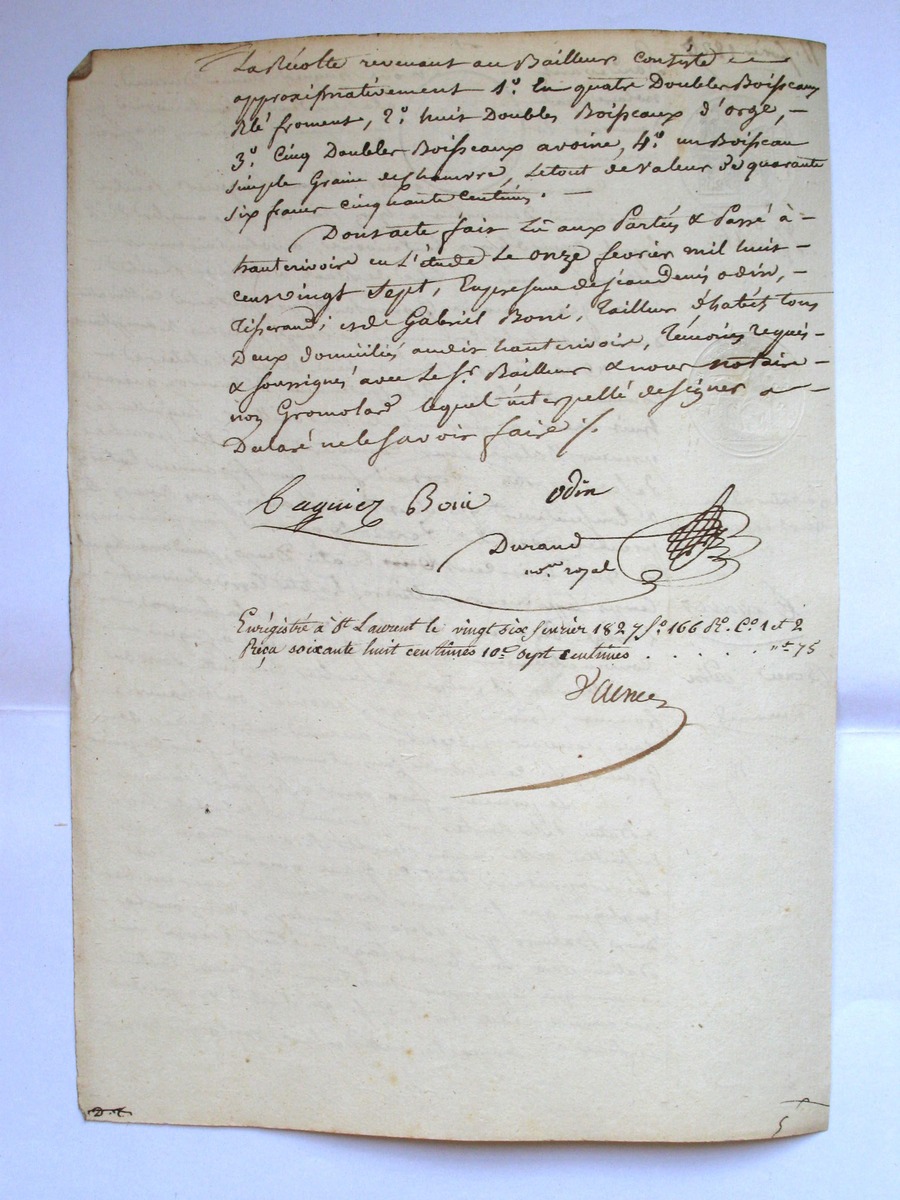 La Récolte revenant au Bailleur consiste en
approximativement 1.º En quatre Doubles Boisseaux
Blé froment, 2.º huit Doubles Boisseaux d'orge, -
3.º Cinq Doubles Boisseaux avoine, 4.º un Boisseau
simple Graine de Chanvre, Le tout de valeur de quarante
six francs cinquante centimes. -
Dont acte fait Lû aux Parties & Passé à -
hauterivoire en L'étude Le onze fevrier mil huit -
cent vingt sept, En presence de jean denis odin, -
Tisserand; et de Gabriel Boni, Tailleur d'habits tous
Deux domiciliés audit hauterivoire, Témoins requis -
& soussignés avec Le Sr. Bailleur & nous notaire -
non Gromolard lequel interpellé de signer a -
Déclaré ne le savoir faire /.
Caguiez Boni odin
Durand
nore royal
Enrégistré à St Laurent le vingt six fevrier 1827 fo. 166 Ro. Co. 1 et 2
Reçu soixante huit centimes 10e. sept centimes . . . . . "f 75
D. t.
5